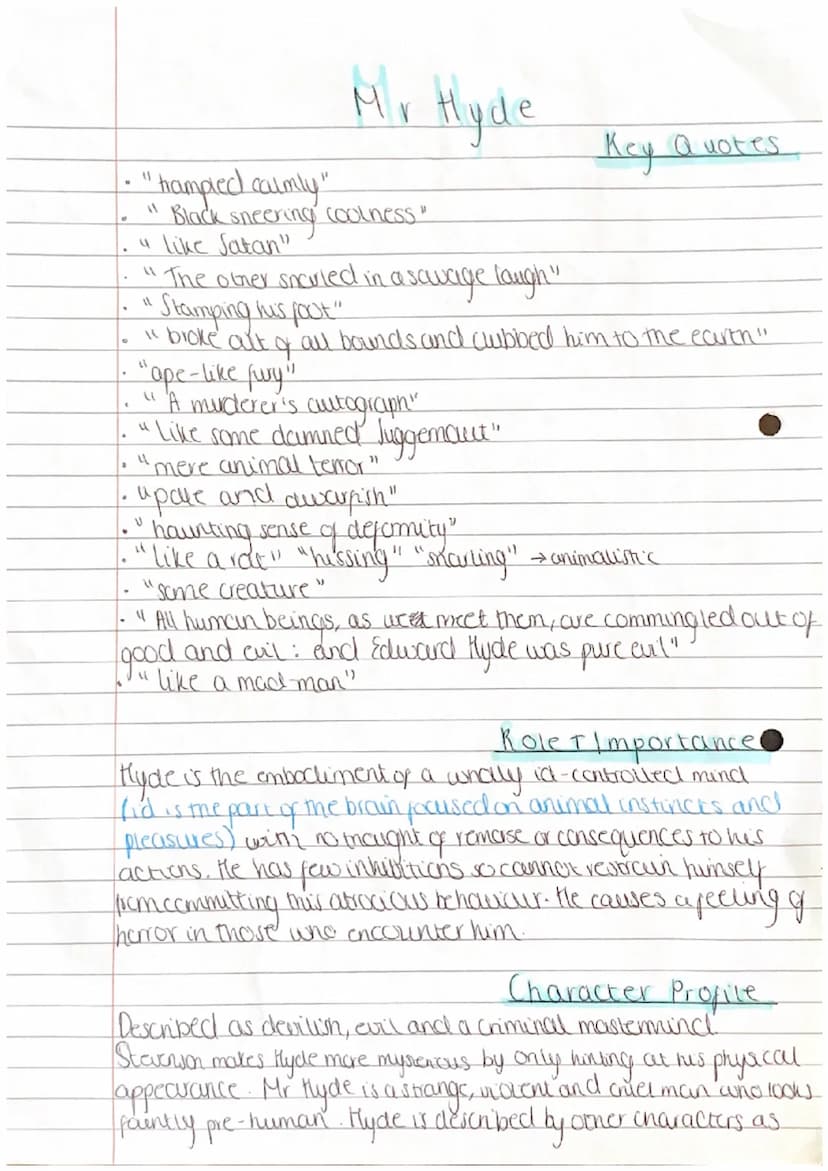 Mr Hyde
Key Quotes
• "trampled calmly"
• "Black sneering coolness"
• "like Satan"
• "The other snarled in a savage laugh"
• "Stamping his foot"
• "broke out of all bounds and clubbed him to the earth"
• "ape-like fury"
• "A murderer's autograph"
• "Like some damned Juggernaut"
• "mere animal terror"
• "pale and dwarfish"
• "haunting sense of deformity"
• "like a rat" "hissing" "snarling" → animalistic
• "some creature"
• "All human beings, as we meet them, are commingled out of
good and evil: and Edward Hyde was pure evil"
• "like a mad-man"
Role + Importance
Hyde is the embodiment of a wholly id-controlled mind
(id is the part of the brain focused on animal instincts and
pleasures) with no thought of remorse or consequences to his
actions. He has few inhibitions so cannot restrain himself
from committing this atrocious behaviour. He causes a feeling of
horror in those who encounter him.
Character Profile
Described as devilish, evil and a criminal mastermind.
Stevenson makes Hyde more mysterious by only hinting at his physical
appearance. Mr Hyde is a strange, violent and cruel man who looks
faintly pre-human. Hyde is described by other characters as